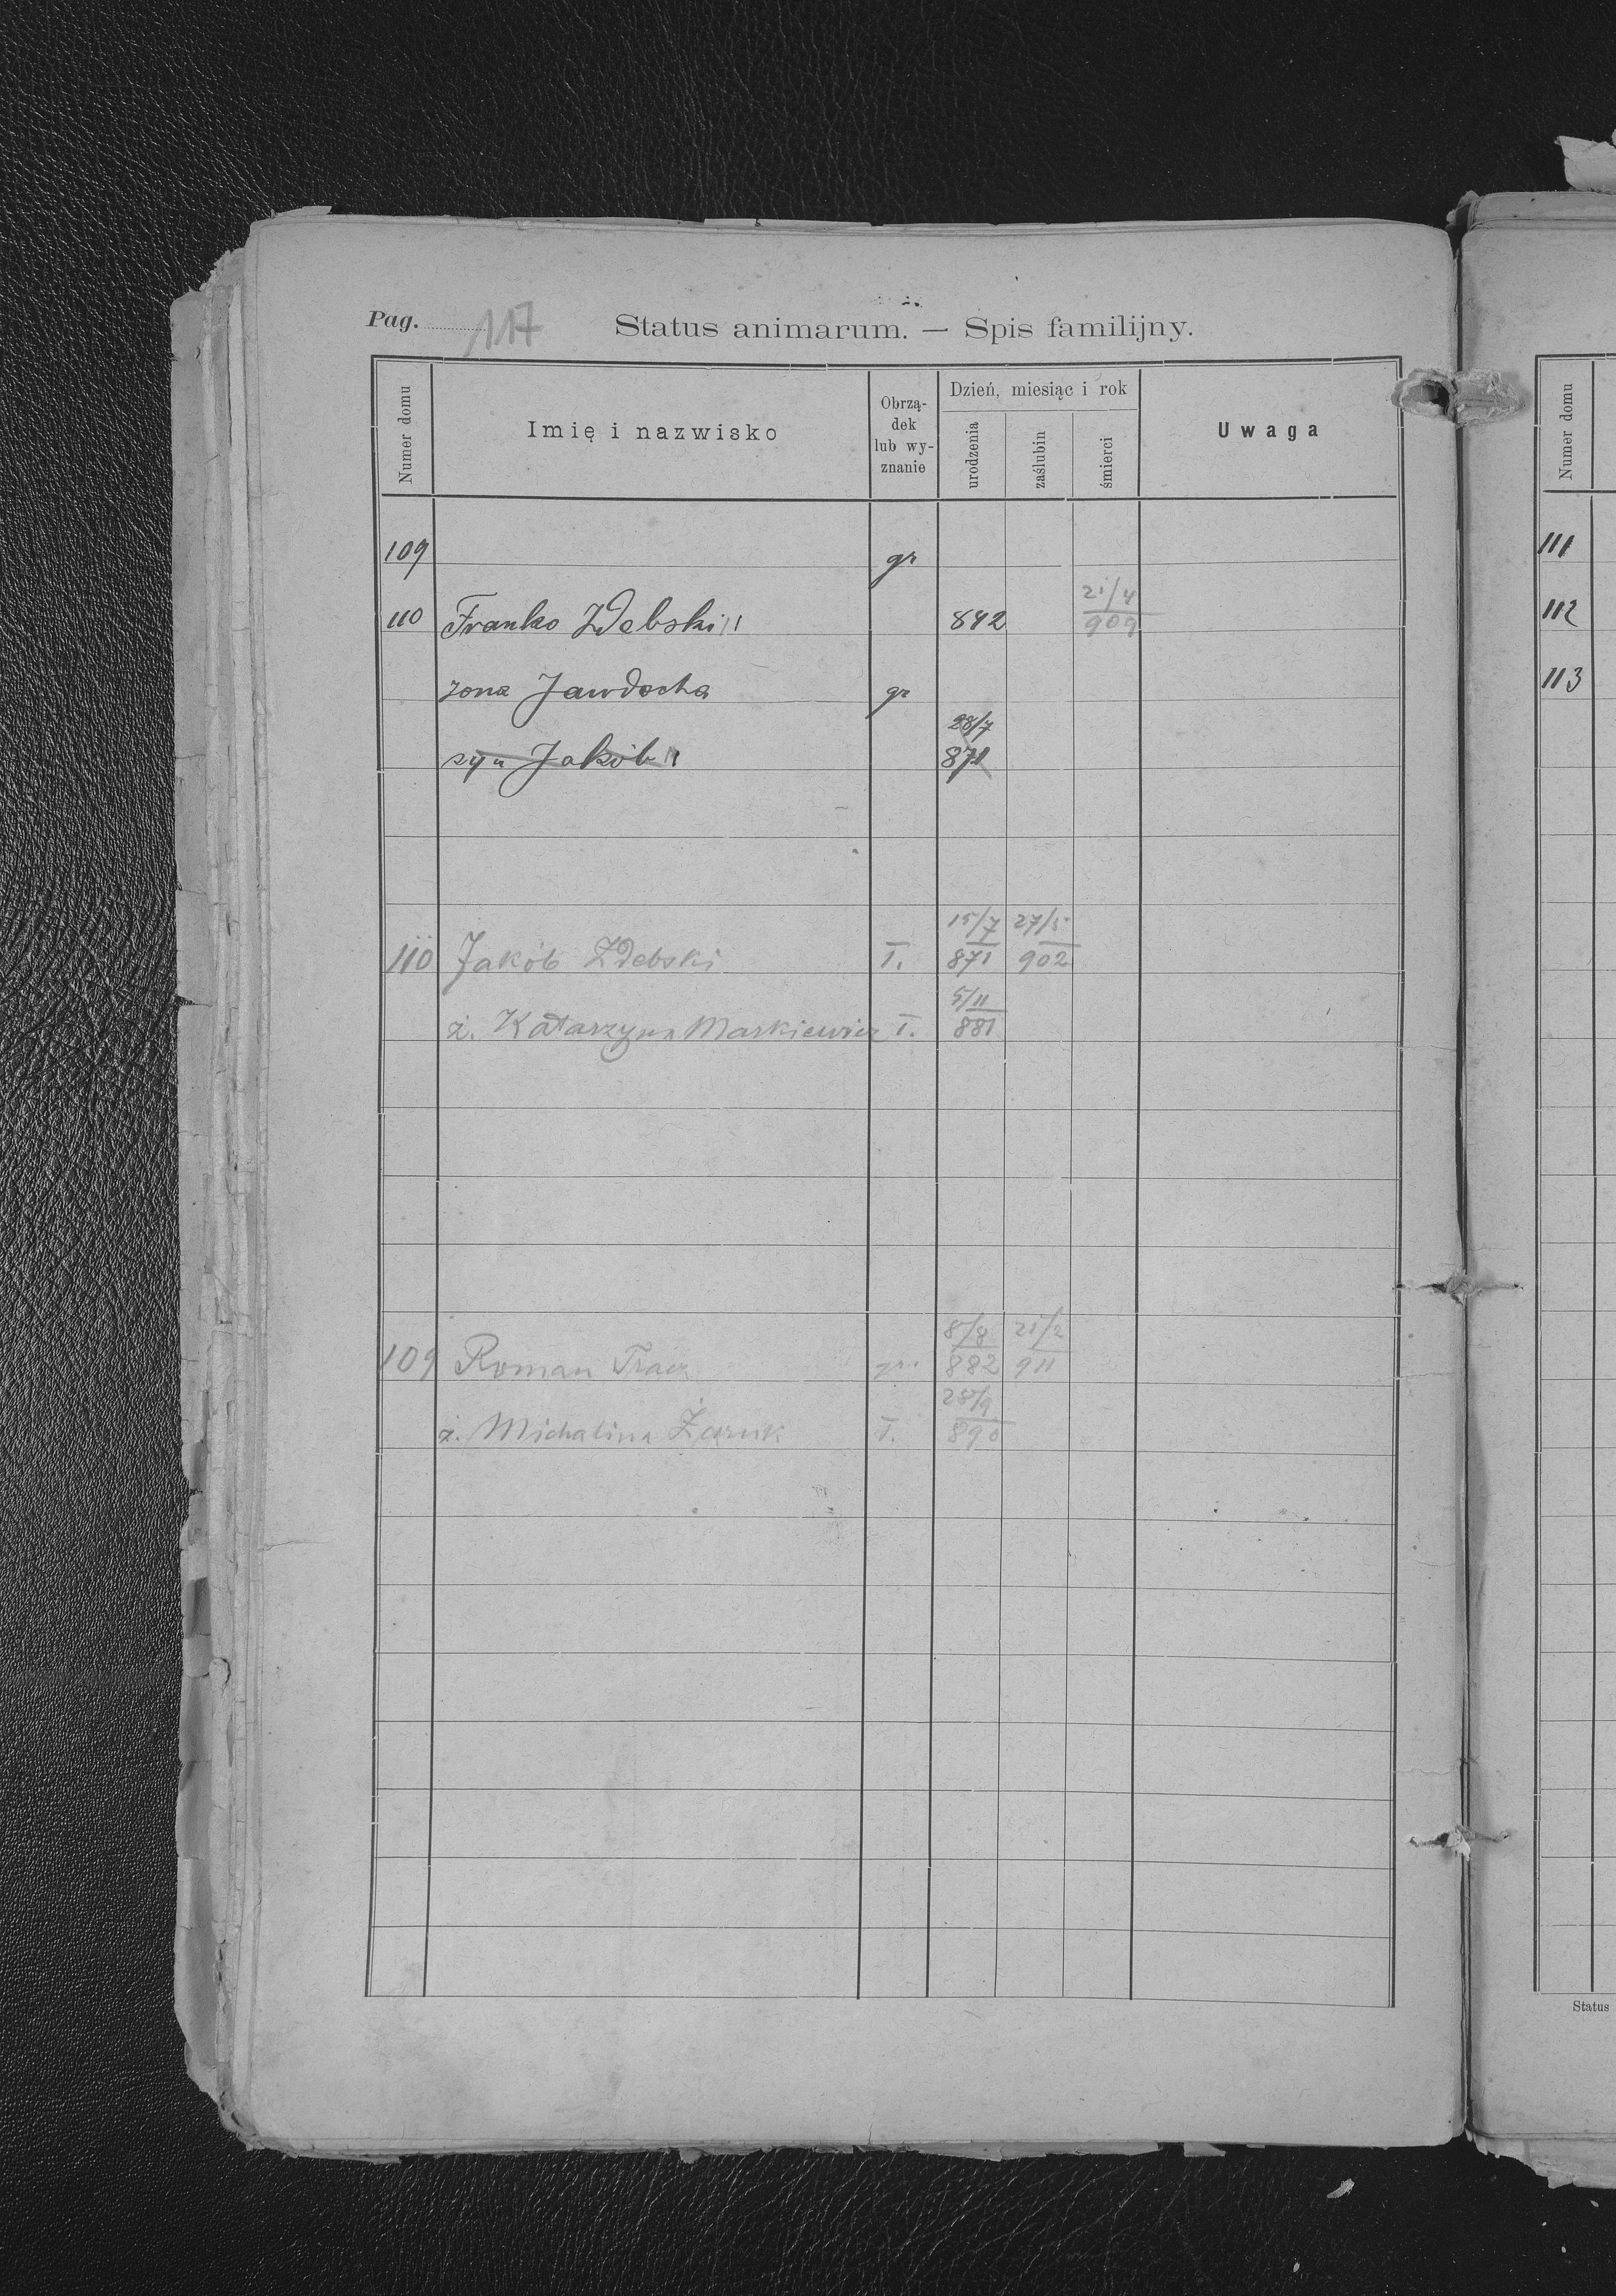 Pag. 117 Status animarum. — Spis familijny.
Numer domu
Imię i nazwisko
Obrzą-
dek
lub wy-
znanie
Dzień, miesiąc i rok
urodzenia
zaślubin
śmierci
Uwaga
109 gr
21/4
110 Franko Zdebski 842 909
zona Jawdocha gr
28/7
syn Jakób 871
15/7 27/5
110 Jakób Zdebski Ł. 871 902
5/11
ż. Katarzyna Markiewicz Ł. 881
8/8 21/2
109 Roman Tracz gr. 882 911
28/9
ż. Michalina Żaruk Ł. 890
Numer domu
111
112
113
Status